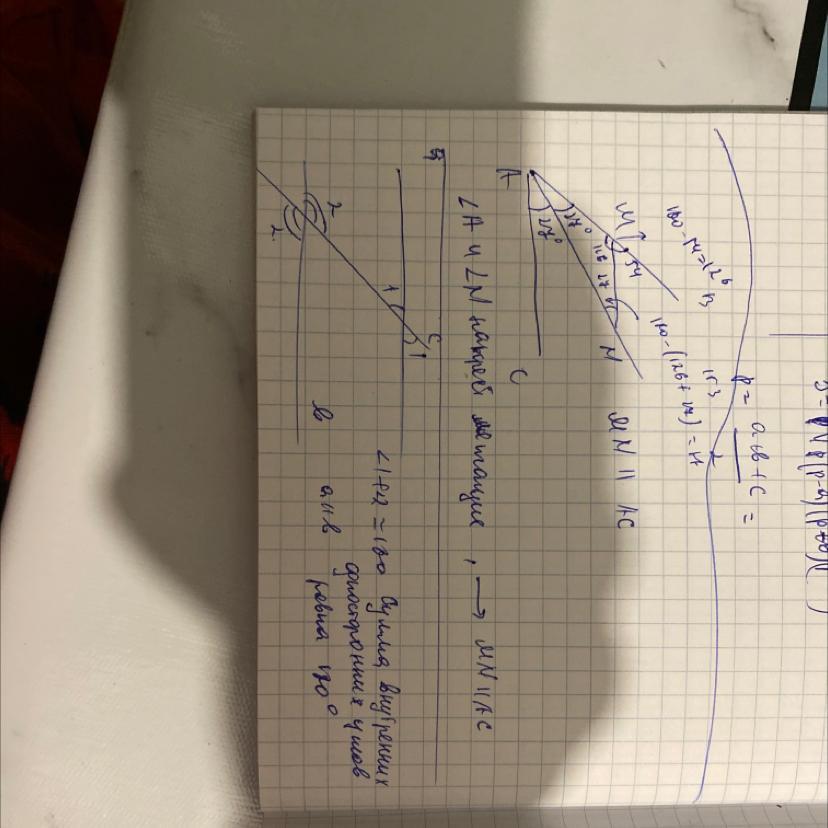 p = a+b+c =
180-54=126
180-(126+27)=27
153
M
54
27°
126 27
27°
N
A
C
MN || AC
∠A и ∠N накрест лежащие, → MN || AC
c
1
1
2
2
в
∠1+2=180 Сумма внутренних
односторонних углов
a||в равна 180°